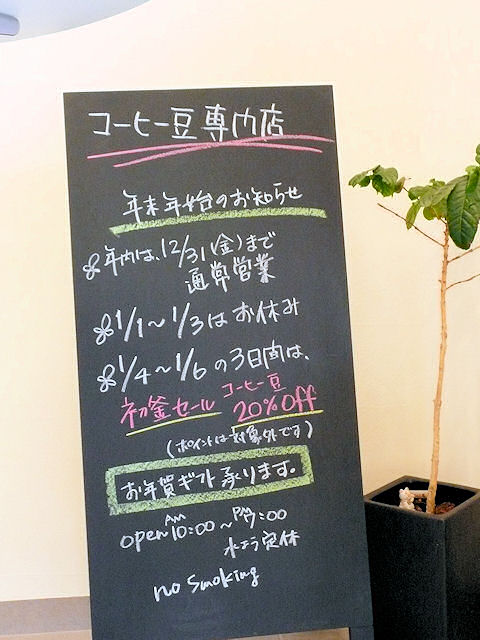 コーヒー豆専門店
年末年始のお知らせ
年内は、12/31(金)まで
通常営業
1/1〜1/3はお休み
1/4〜1/6の3日間は、
初釜セール コーヒー豆
20%off
(ポイントは対象外です)
お年賀ギフト承ります。
open AM10:00〜PM7:00
水よう定休
no smoking